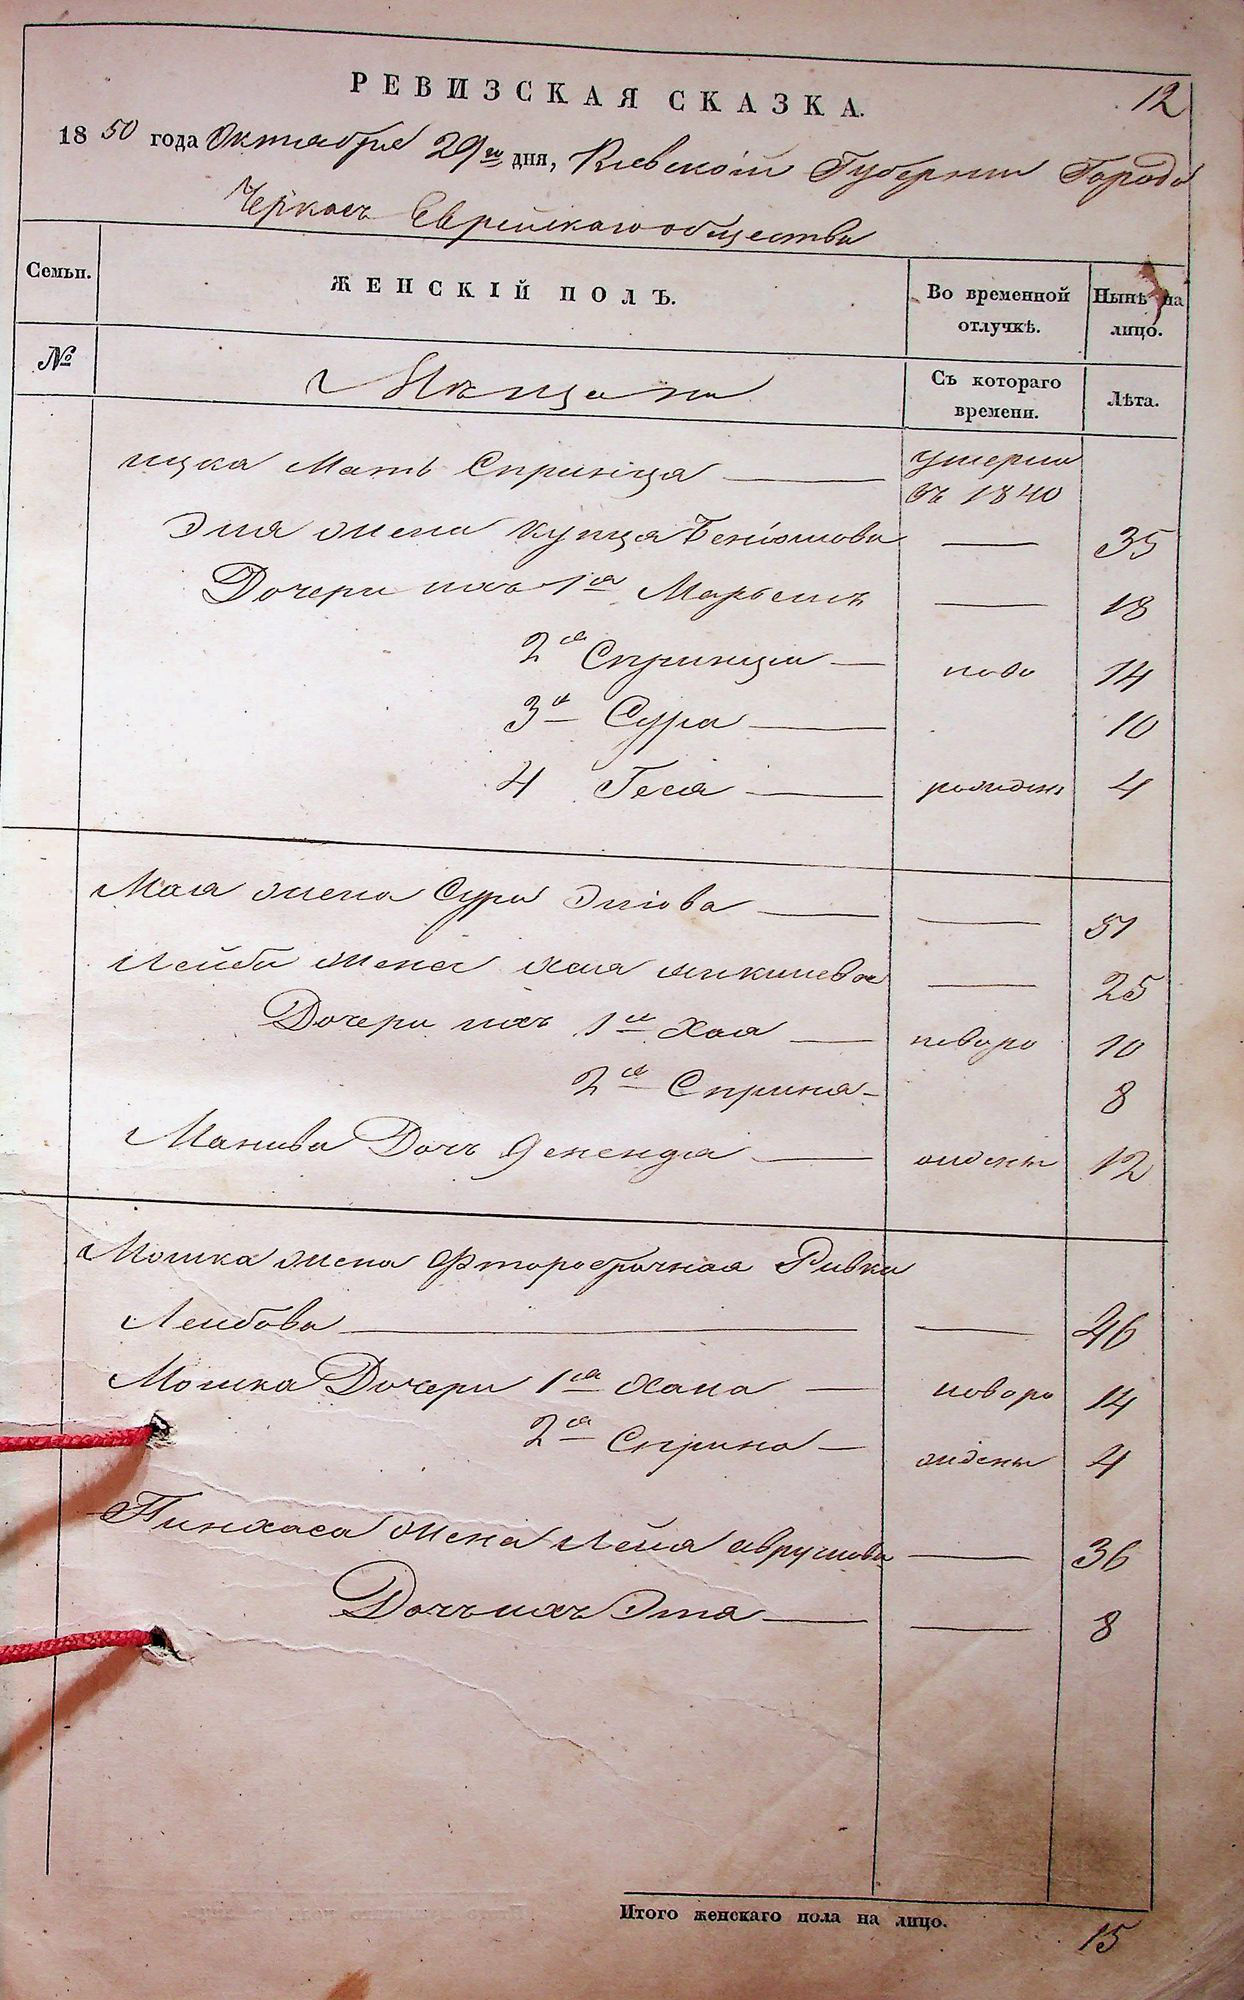 12
РЕВИЗСКАЯ СКАЗКА.
1850 года Октября 29го дня, Киевской Губернии Города
Черкас Еврейскаго общества
Семьи.
ЖЕНСКІЙ ПОЛЪ.
Во временной отлучкѣ.
Нынѣ на лицо.
№
Мѣщани
Съ котораго времени.
Лѣта.
ицка Мать Спринца умерла въ 1840
Эля жена купца Беніомова 35
Дочери ихъ 1я Марьемъ 18
2я Спринца ново 14
3я Сура 10
4 Геся рожденъ 4
Мая жена Сура 51
Лейби жена Хая 25
Дочери ихъ 1я Хая новоро 10
2я Сприна 8
Дочь 12
Мошка жена фторобрачная Ривка
Лейбова 46
Мошка Дочери 1я Хана новоро 14
2я Сприна ждены 4
Пинхаса жена Лейя 36
Дочь ихъ Этя 8
Итого женскаго пола на лицо.
15